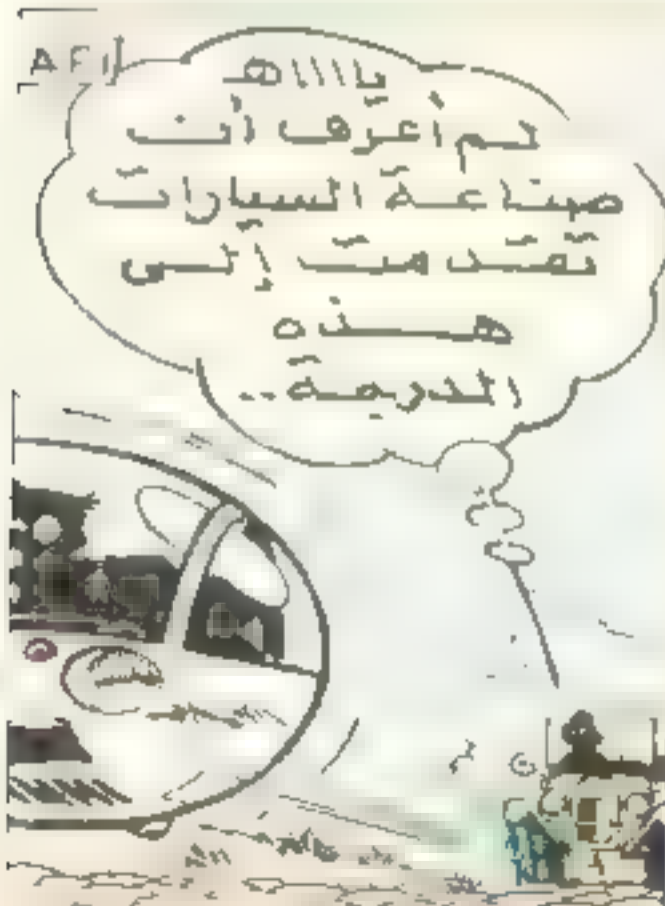 AFI
يااااه
لم أعرف أن
صناعة السيارات
تقدمت إلى
هذه
الدرجة..